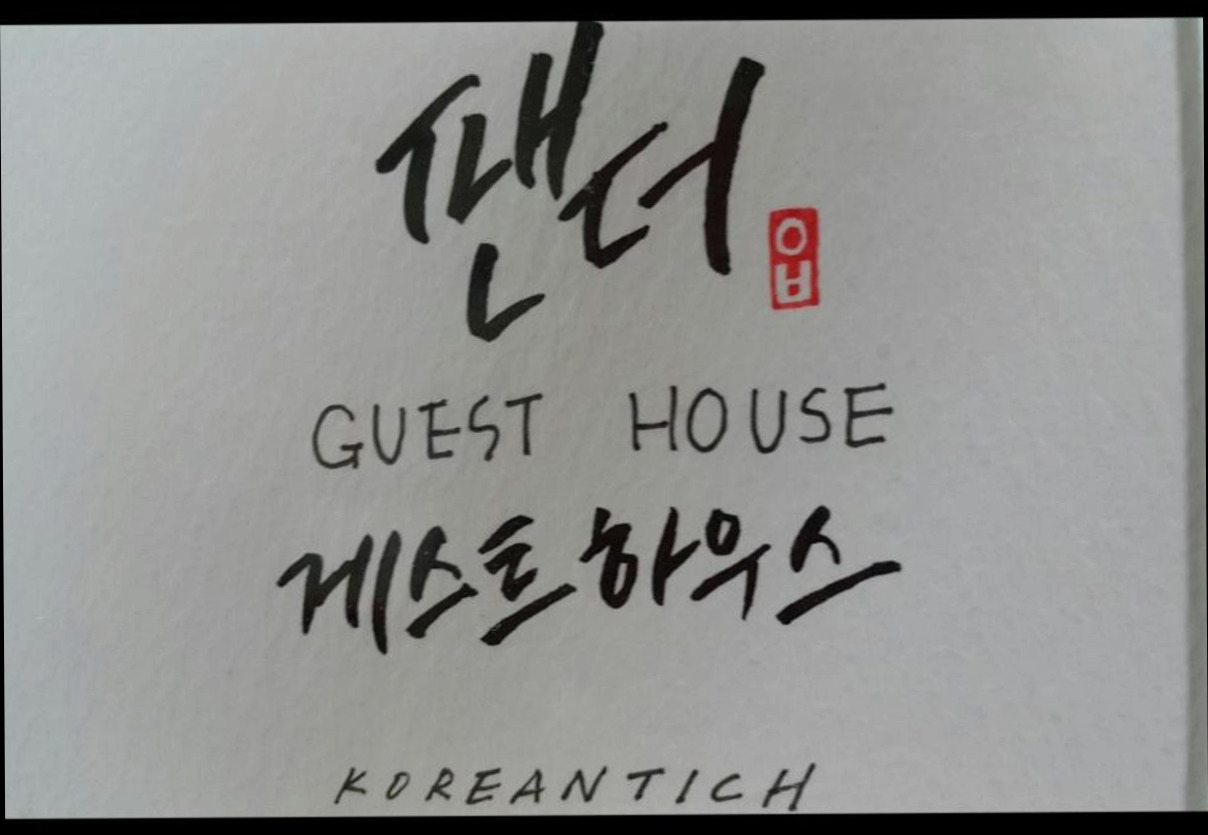 팬더
입
GUEST HOUSE
게스트하우스
KOREANTICH